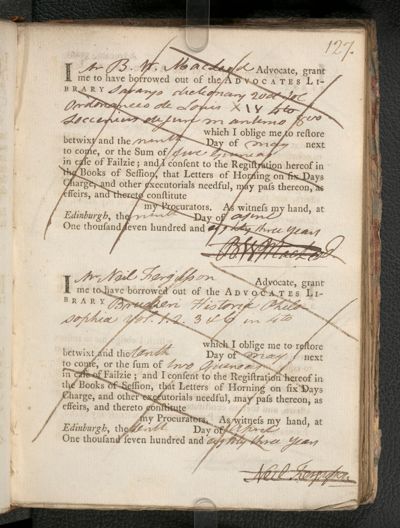 127.
I Mr B. W. Macleod Advocate, grant
me to have borrowed out of the ADVOCATES LI-
BRARY Savarys dictionary 2 vol. fol.
Ordonances de Louis XIV 4to
Seccanius de jure maritimo 8vo
which I oblige me to restore
betwixt and the ninth Day of may next
to come, or the Sum of five Guineas
in case of Failzie; and I consent to the Registration hereof in
the Books of Session, that Letters of Horning on six Days
Charge, and other executorials needful, may pass thereon, as
effeirs, and thereto constitute
my Procurators. As witness my hand, at
Edinburgh, the ninth Day of aprile
One thousand seven hundred and eighty three years
I Mr Neil Fergusson Advocate, grant
me to have borrowed out of the ADVOCATES LI-
BRARY Bruckeri Historia Philo
sophia Vol. 1. 2. 3 & 6 in 4to
which I oblige me to restore
betwixt and the tenth Day of may next
to come, or the sum of two Guineas
in case of Failzie; and I consent to the Registration hereof in
the Books of Session, that Letters of Horning on six Days
Charge, and other executorials needful, may pass thereon, as
effeirs, and thereto constitute
my Procurators. As witness my hand, at
Edinburgh, the tenth Day of aprile
One thousand seven hundred and eighty three years
Neil Fergusson